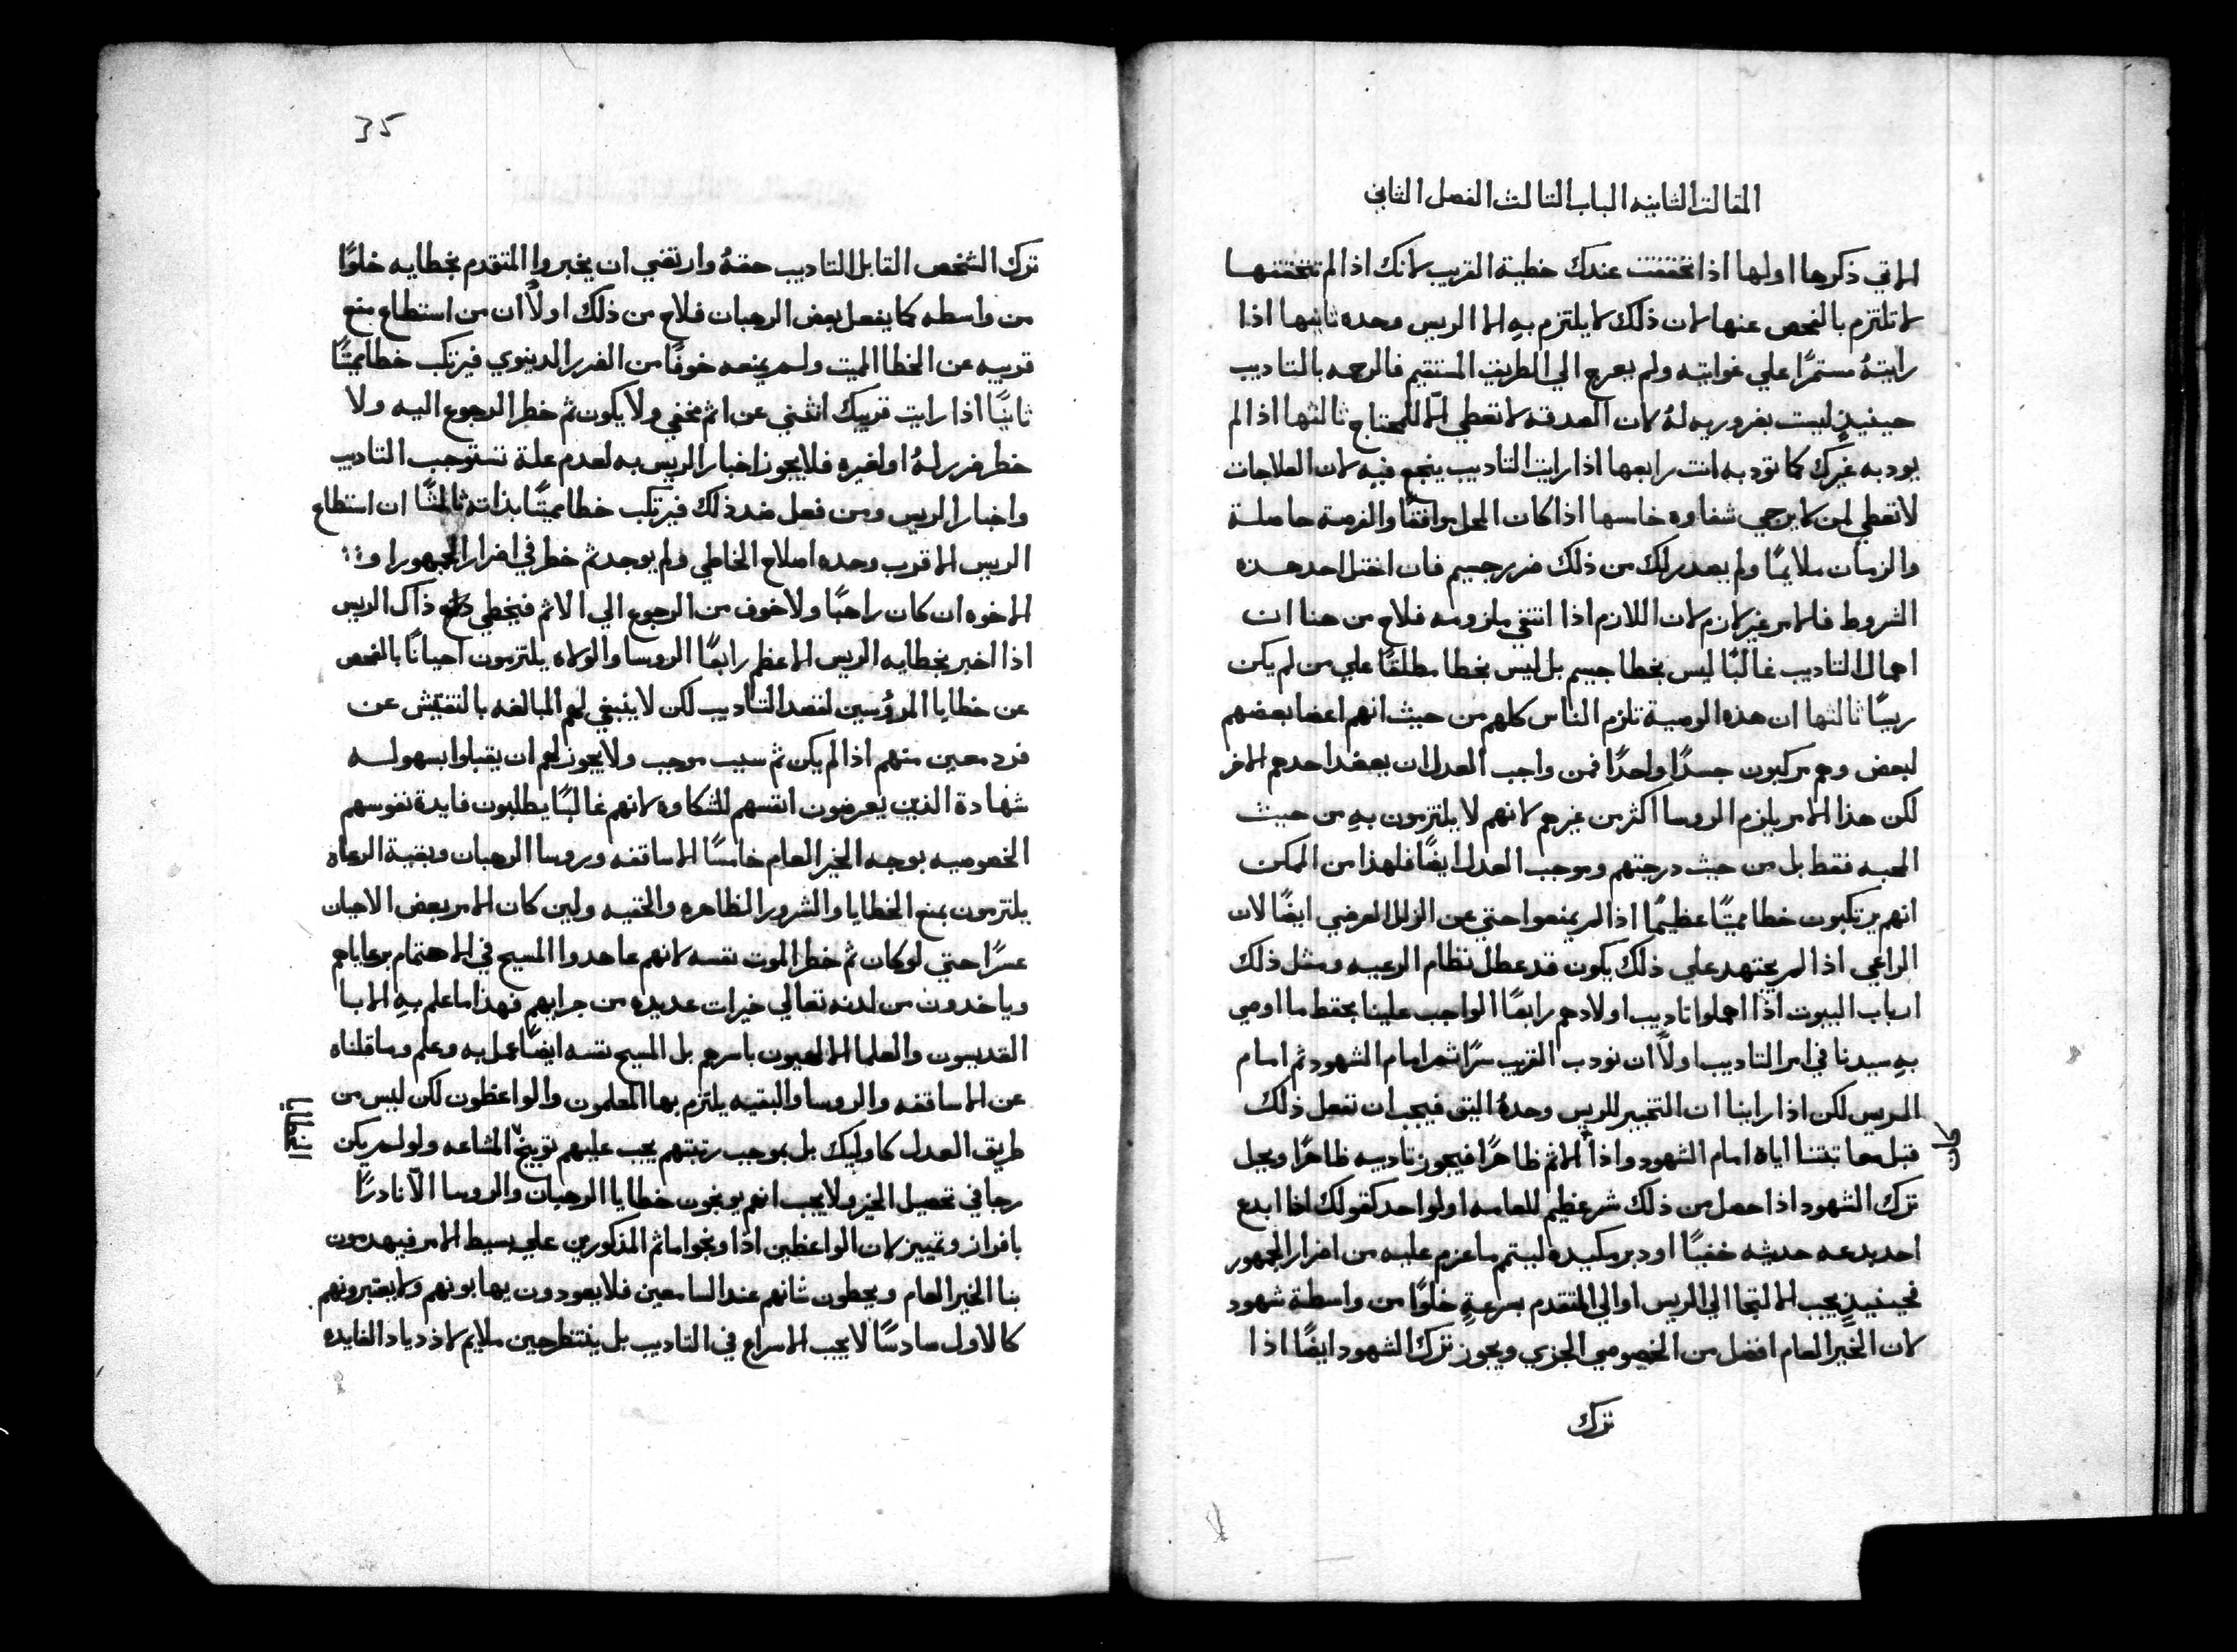 المقالة الثانيه الباب الثالث الفصل الثاني
الاتي ذكرها اولها اذا تحققت عندك خطية القريب لانك اذا لم تتحققها
لا تلتزم بالفحص عنها لان ذلك لا يلتزم به الا الريس وحده ثانيها اذا
رايتهُ مستمرًا علي غوايته ولم يعرج الي الطريق المستقيم فالرجمه بالتاديب
حينيذٍ ليست بضروريه لهُ لان الصدقه لا تعطي الّا للمحتاج ثالثها اذا لم
يودبه غيرك كما تودبه انت رابعها اذا رايت التاديب ينجع فيه لان العلاجات
لا تعطي لمن لا يرجي شفاوه خامسها اذا كان المحل موافقًا والفرصة حاصلة
والزمان ملايمًا ولم يصدر لك من ذلك ضرر جسيم فان اختل احد هذه
الشروط فالامر غير لازم لان اللازم اذا انتفي ملزومه فلاح من هنا ان
اهمال التاديب غالبًا ليس بخطا جسيم بل ليس بخطا مطلقًا علي من لم يكن
ريسًا ثالثها ان هذه الوصية تلزم الناس كلهم من حيث انهم اعضا بعضهم
لبعض وهم مركبون جسدًا واحدًا فمن واجب العدل ان يعضد احدهم الاخر
لكن هذا الامر يلزم الروسا اكثر من غيرهم لانهم لا يلتزمون به من حيث
المحبه فقط بل من حيث درجتهم وموجب العدل ايضًا فلهذا من الممكن
انهم يرتكبون خطا مميتًا عظيمًا اذا لم يمنعوا حتي عن الزلل العرضي ايضًا لان
الراعي اذا لم يجتهد علي ذلك يكون قد عطل نظام الرعيه ومثل ذلك
ارباب البيوت اذا اهملوا تاديب اولادهم رابعًا الواجب علينا بحفظ ما اوصي
به سيدنا في امر التاديب اولاً ان نودب القريب سرًا ثم امام الشهود ثم امام
الريس لكن اذا راينا ان التخبير للريس وحدهُ اليق فيجب ان نفعل ذلك
قبل معاتبتنا اياه امام الشهود واذا الاثم ظاهرًا فيجوز تاديبه ظاهرًا ويحل
كان
ترك الشهود اذا حصل من ذلك شر عظيم للعامه او لواحد كقولك اذا ابدع
احد بدعه حديثه خفيًا او دبر مكيده ليتم ما عزم عليه من اضرار الجمهور
فحينيذٍ يجب الالتجا الي الريس او الي المتقدم بسرعةٍ خلوًا من واسطة شهود
لان الخير العام افضل من الخصوصي الجزي ويجوز ترك الشهود ايضًا اذا
ترك
35
ترك الشخص القابل التاديب حقهُ وارتضي ان يخبروا المتقدم بخطايه خلوًا
من واسطه كما يفعل بعض الرهبان فلاح من ذلك اولاً ان من استطاع منع
قريبه عن الخطا المميت ولم يمنعه خوفًا من الضرر الدنيوي فيرتكب خطا مميتًا
ثانيًا اذا رايت قريبك انثني عن اثم مخفي ولا يكون ثم خطر الرجوع اليه ولا
خطر ضرر لهُ او لغيره فلا يجوز اخبار الريس به لعدم علة تستوجب التاديب
واخبار الريس ومن فعل ضد ذلك فيرتكب خطا مميتًا بذاته ثالثًا ان استطاع
الريس الاقرب وحده اصلاح الخاطي ولم يوجد ثم خطر في اضرار الجمهور او
الاخوه ان كان راهبًا ولا خوف من الرجوع الي الاثم فيخطي ذاك الريس
اذا اخبر بخطايه الريس الاعظم رابعًا الروسا والولاه يلتزمون احيانًا بالفحص
عن خطايا المرؤسين لقصد التاديب لكن لا ينبغي لهم المبالغه بالتفتيش عن
فرد معين منهم اذا لم يكن ثم سبب موجب ولا يجوز لهم ان يقبلوا بسهوله
شهادة الذين يعرضون انفسهم للشكاوه لانهم غالبًا يطلبون فايدة نفوسهم
الخصوصيه بوجه الخير العام خامسًا الاساقفه وروسا الرهبان وبقية الرعاه
يلتزمون بمنع الخطايا والشرور الظاهره والخفيه ولين كان الامر بعض الاحيان
عسرًا حتي لو كان ثم خطر الموت نفسه لانهم عاهدوا المسيح في الاهتمام برعاياهم
وياخدون من لدنه تعالي خيرات عديده من جرايهم فهذا ما علم به الابا
القديسون والعلما الالهيون باسرهم بل المسيح نفسه ايضًا عمل به وعلم وما قلناه
عن الاساقفه والروسا والبقيه يلتزم بها المعلمون والواعظون لكن ليس من
طريق العدل كاوليك بل بموجب رتبتهم يجب عليهم توبيخ المشاعه ولو لم يكن
الخطايا
رجا في تحصيل الخير ولا يجب انهم يوبخون خطايا الرهبان والروسا الّا نادرًا
بافراز وتمييز لان الواعظين اذا وبخوا ماثم المذكورين علي بسيط الامر فيهدمون
بنا الخير العام ويحطون شانهم عند السامعين فلا يعودون يهابونهم ولا يعتبرونهم
كالاول سادسًا لا يجب الاسراع في التاديب بل ينتظر حين ملايم لازدياد الفايده